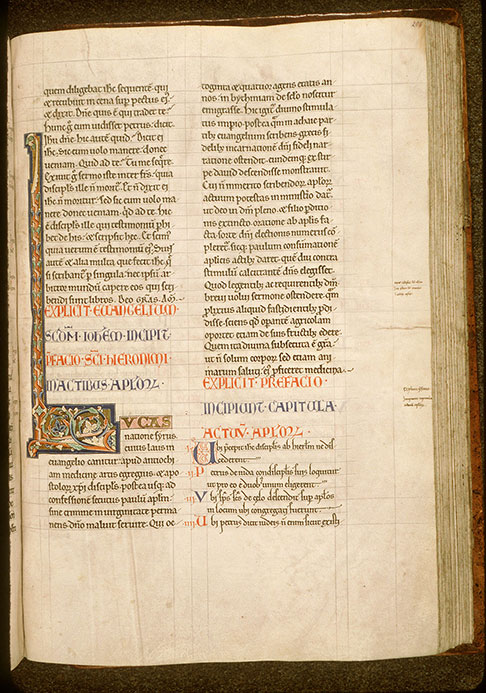 quem diligebat ihc sequentē. qui
& recubuit in cena sup pectus ei.
& dixit. Dne quis ē qui tradet te.
Hunc g̊ cum uidisset petrus. dicit
Ihu. dne. hic autē quid. Dicit ei
ihc. Sic eum uolo manere donec
ueniam. Quid ad te. Tu me seqre.
Exiuit g̊ sermo iste inter frs. quia
discipls ille n̄ morit. Et n̄ dixit ei
ihc n̄ moritur. Sed sic eum uolo ma
nere donec ueniam. qd ad te. Hic
ē discipls ille qui testimoniū phi
bet de his. & scripsit hec. Et scim
quia uerum ē testimoniū ei. Sunt
autē & alia multa que fecit ihc. q̄
si scribant p singula. nec ipsū ar
bitror mundū capere eos qui scri
bendi sunt libros. Deo gras. Am̄
EXPLICIT EUUANGELIUM
SCDM IOHEM INCIPIT
PFACIO SCI HIERONIMI
IN ACTIBUS APLORU.
LUCAS
natione syrus
cuius laus in
euangelio canitur. apud antiochi
am medicine artis egregius. & apo
stolor xpi discipls. postea usq ad
confessionē secutus paulū aplm.
sine crimine in uirginitate perma
nens. dno maluit seruire. Qui oc
toginta & quatuor agens etatis an
nos. in bythiniam de seclo noscitur
emigrasse. Hic igit diuino stimula
tus impio. postea qm in achaie par
tib euangelium scribens. grecis fi
delib incarnationē dni fideli nar
ratione ostendit. eundemq ex stir
pe dauid descendisse monstrauit.
Cui n̄ inmerito scribendor aplor
actuum potestas in ministio dat.
ut deo in dm pleno. & filio pditio
nis extincto. oratione ab aplis fa
cta. sorte dni electionis numerus cō
pleret. sicq paulum consumationē
aplicis actib daret. quē diu contra
stimulū calcitrantē dns elegisset.
Quod legentib ac requirentib dm
breui uolui sermone ostendere. qm
plixius aliquid fastidientib pdi
disse. sciens qd opantē agricolam
oportet etiam de suis fructib edere.
Quem ita diuina subsecuta ē gra.
ut n̄ solum corpor. sed etiam ani
marum ei pficeret medicina.
EXPLICIT PREFACIO.
INCIPIUNT CAPITULA
ACTUU APLORU.
Ubi pcepit ihc discipls ab hierlm ne dis
cederent
ii Petrus de iuda condiscipls suis loquitur
ut pro eo eligerent
iii Ubi sps scs de celo descendit sup aplos
in locum ubi congregati fuerunt
iiii Ubi petrus dicit iudeis n̄ eum sicut existi